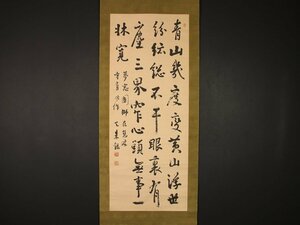 青山幾度變黄山浮世
紛紜総不干眼裏有
塵三界窄心頭無事一
牀寛
夢窓國師